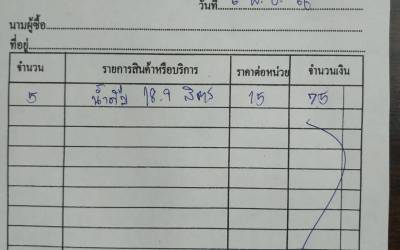 วันที่
นามผู้ซื้อ
ที่อยู่
จำนวน รายการสินค้าหรือบริการ ราคาต่อหน่วย จำนวนเงิน
5 น้ำดื่ม 18.9 ลิตร 15 75